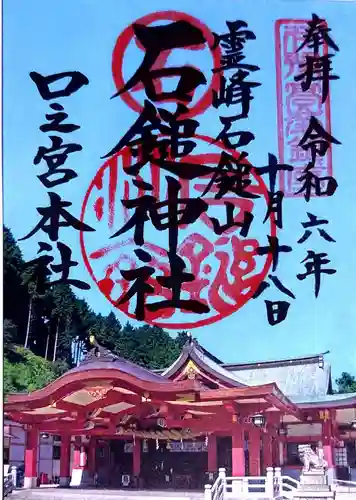 奉拝
令和六年
十月十八日
霊峰石鎚山
石鎚神社
口之宮本社